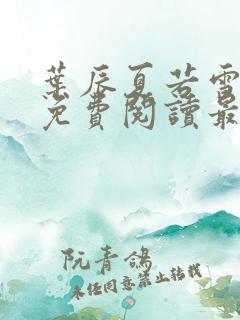 葉辰夏若雪
免費閱讀最
阮青鴿
未經同意禁止轉載